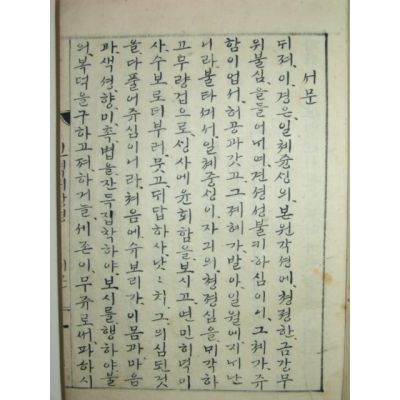 서문
뒤져 이 경은 일체즁싱의 본원각셩에 쳥졍한 금강무
위불심을 들어내여 견셩셩불키 하심이 그 톄가 쥬
함이 업서 허공과 갓고 그 지혜가 발아 일월에 지내난
니라 불타께서 일체중싱이 자긔의 쳥졍심을 미각하
고 무량겁으로 싱사에 윤회함을 보시고 면민히 역이
사 수보로 더부러 뭇고 대답하사 낫〻치 그 의심된 것
을 다 풀어 쥬심이니라 쳐음에 슈보리가 이 몸과 마음
과 색셩향미촉법을 잔득 집착하야 보시를 행하야 불
의 복덕을 구하고져 하거늘 세존이 무쥬로써 파하시